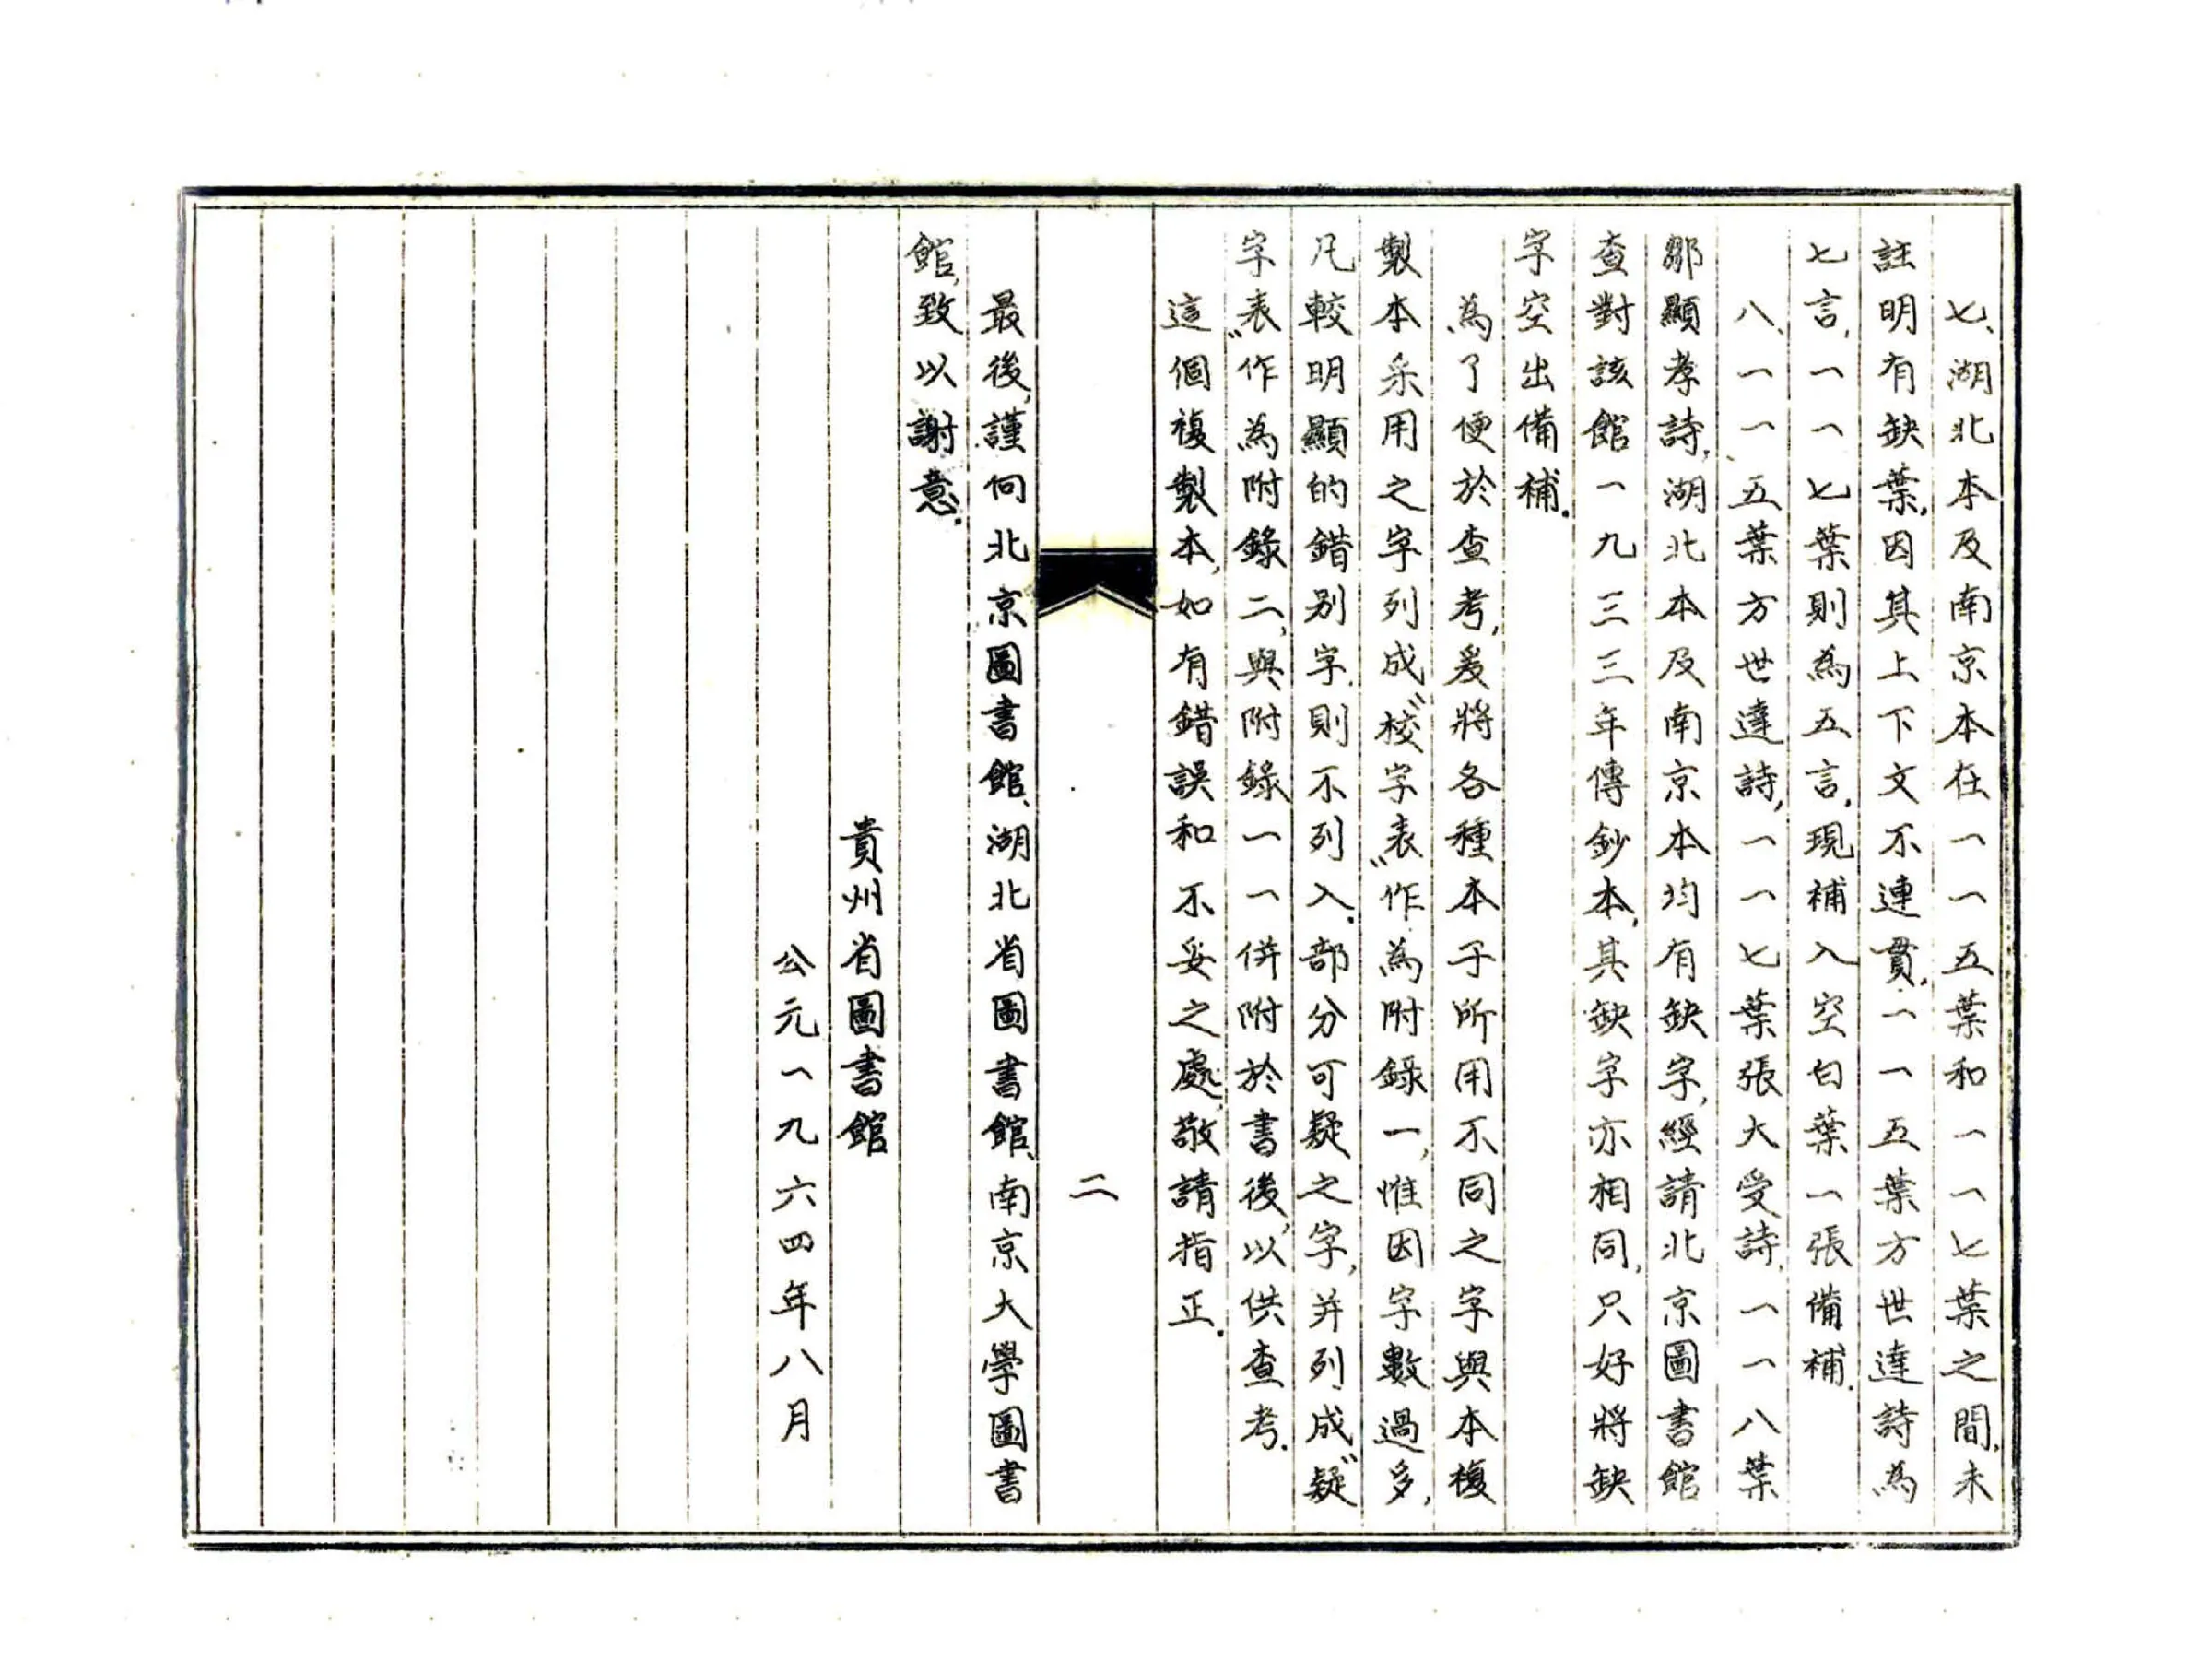 七、湖北本及南京本在一一五葉和一一七葉之間,未
註明有缺葉,因其上下文不連貫,一一五葉方世達詩為
七言,一一七葉則為五言,現補入空白葉一張備補.
八、一一五葉方世達詩,一一七葉張大受詩,一一八葉
鄒顯孝詩,湖北本及南京本均有缺字,經請北京圖書館
查對該館一九三三年傳鈔本,其缺字亦相同,只好將缺
字空出備補.
為了便於查考,爰將各種本子所用不同之字與本複
製本采用之字列成“校字表”作為附錄一,惟因字數過多,
凡較明顯的錯別字,則不列入.部分可疑之字,并列成“疑
字表”作為附錄二,與附錄一一併附於書後,以供查考.
這個複製本,如有錯誤和不妥之處,敬請指正.
二
最後,謹向北京圖書館、湖北省圖書館、南京大學圖書
館,致以謝意.
貴州省圖書館
公元一九六四年八月